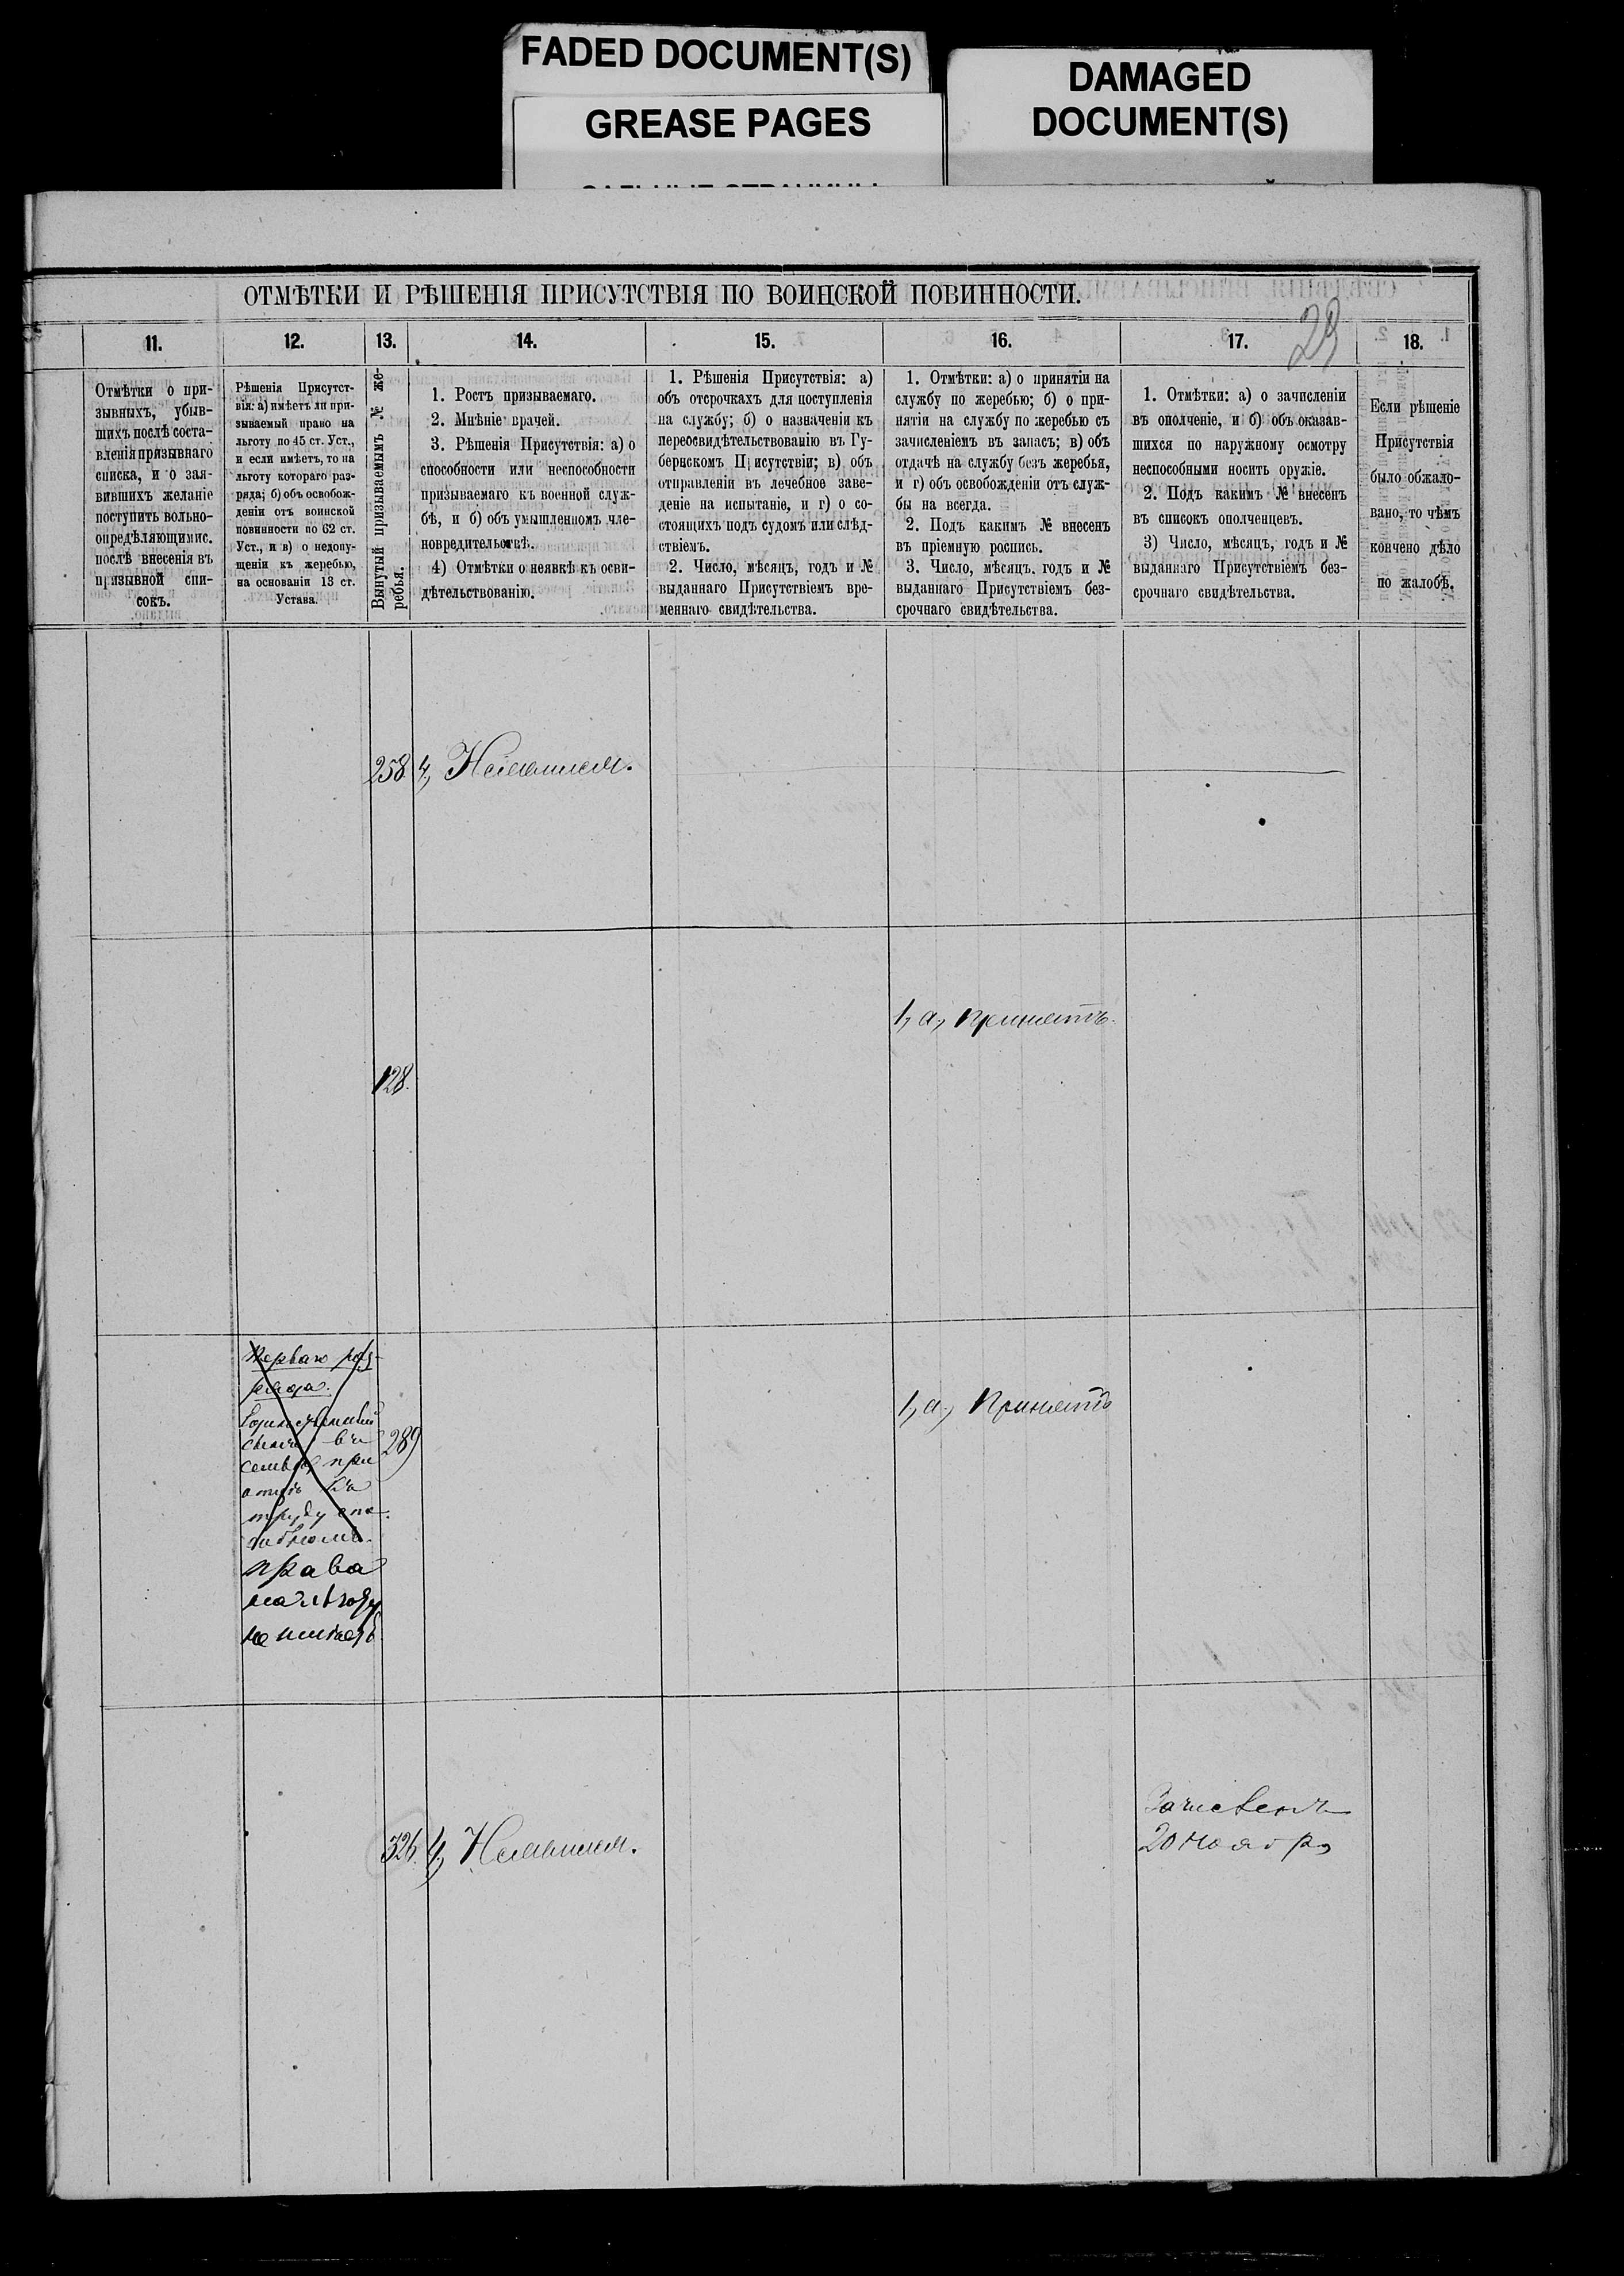 FADED DOCUMENT(S)
GREASE PAGES
DAMAGED
DOCUMENT(S)
ОТМѢТКИ И РѢШЕНІЯ ПРИСУТСТВІЯ ПО ВОИНСКОЙ ПОВИННОСТИ.
29
11.
12.
13.
14.
15.
16.
17.
18.
Отмѣтки о при-
зывныхъ, убыв-
шихъ послѣ соста-
вленія призывнаго
списка, и о зая-
вившихъ желаніе
поступить вольно-
опредѣляющимис.
послѣ внесенія въ
призывной спи-
сокъ.
Рѣшенія Присутст-
вія: а) имѣетъ ли при-
зываемый право на
льготу по 45 ст. Уст.,
и если имѣетъ, то на
льготу котораго раз-
ряда; б) объ освобож-
деніи отъ воинской
повинности по 62 ст.
Уст., и в) о недопу-
щеніи къ жеребью,
на основаніи 13 ст.
Устава.
Вынутый призываемымъ № же-
ребья.
1. Ростъ призываемаго.
2. Мнѣніе врачей.
3. Рѣшенія Присутствія: а) о
способности или неспособности
призываемаго къ военной служ-
бѣ, и б) объ умышленномъ чле-
новредительствѣ.
4) Отмѣтки о неявкѣ къ осви-
дѣтельствованію.
1. Рѣшенія Присутствія: а)
объ отсрочкахъ для поступленія
на службу; б) о назначеніи къ
переосвидѣтельствованію въ Гу-
бернскомъ Присутствіи; в) объ
отправленіи въ лечебное заве-
деніе на испытаніе, и г) о со-
стоящихъ подъ судомъ или слѣд-
ствіемъ.
2. Число, мѣсяцъ, годъ и №
выданнаго Присутствіемъ вре-
меннаго свидѣтельства.
1. Отмѣтки: а) о принятіи на
службу по жеребью; б) о при-
нятіи на службу по жеребью съ
зачисленіемъ въ запасъ; в) объ
отдачѣ на службу безъ жеребья,
и г) объ освобожденіи отъ служ-
бы на всегда.
2. Подъ какимъ № внесенъ
въ пріемную роспись.
3. Число, мѣсяцъ, годъ и №
выданнаго Присутствіемъ без-
срочнаго свидѣтельства.
1. Отмѣтки: а) о зачисленіи
въ ополченіе, и б) объ оказав-
шихся по наружному осмотру
неспособными носить оружіе.
2. Подъ какимъ № внесенъ
въ списокъ ополченцевъ.
3) Число, мѣсяцъ, годъ и №
выданнаго Присутствіемъ без-
срочнаго свидѣтельства.
Если рѣшеніе
Присутствія
было обжало-
вано, то чѣмъ
кончено дѣло
по жалобѣ.
258. 4,
1, а, принятъ.
128.
Перваго раз-
ряда.
Единственный
сынъ въ
семьѣ при
отцѣ къ
труду спо-
собномъ.
права
на льготу
не имѣетъ
289
1, а, Принятъ
326. 4,
Зачисленъ
20 Ноябр